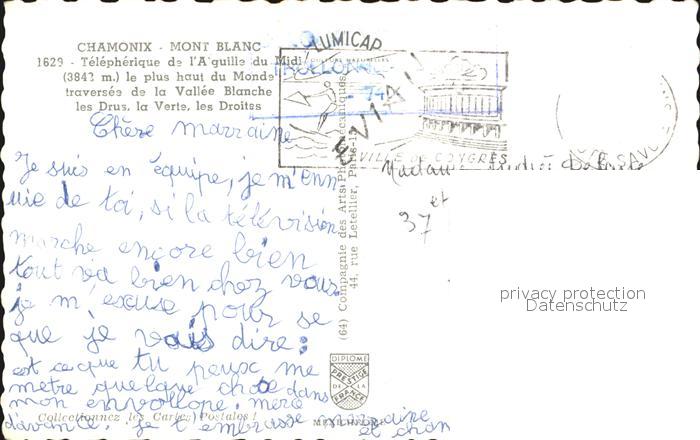 CHAMONIX - MONT BLANC
1629 - Téléphérique de l'Aiguille du Midi
(3842 m.) le plus haut du Monde
traversée de la Vallée Blanche
les Drus, la Verte, les Droites
LUMICAP
74
EVIAN
VILLE DE CONGRES
Chère marraine
Je suis en équipe, je m'enn
uie de toi, si la télévision
marche encore bien
tout va bien chez vous
je m'excuse pour se
que je vais dire:
est ce que tu peux me
metre quelque chose dans
mon envellope. merci
d'avance. je t'embrasse marraine
et
37
(64) Compagnie des Arts Photomécaniques
44, rue Letellier, Paris-15
DIPLOME
PRESTIGE
DE LA
FRANCE
MEXICHROME
Collectionnez les Cartes Postales !
privacy protection
Datenschutz